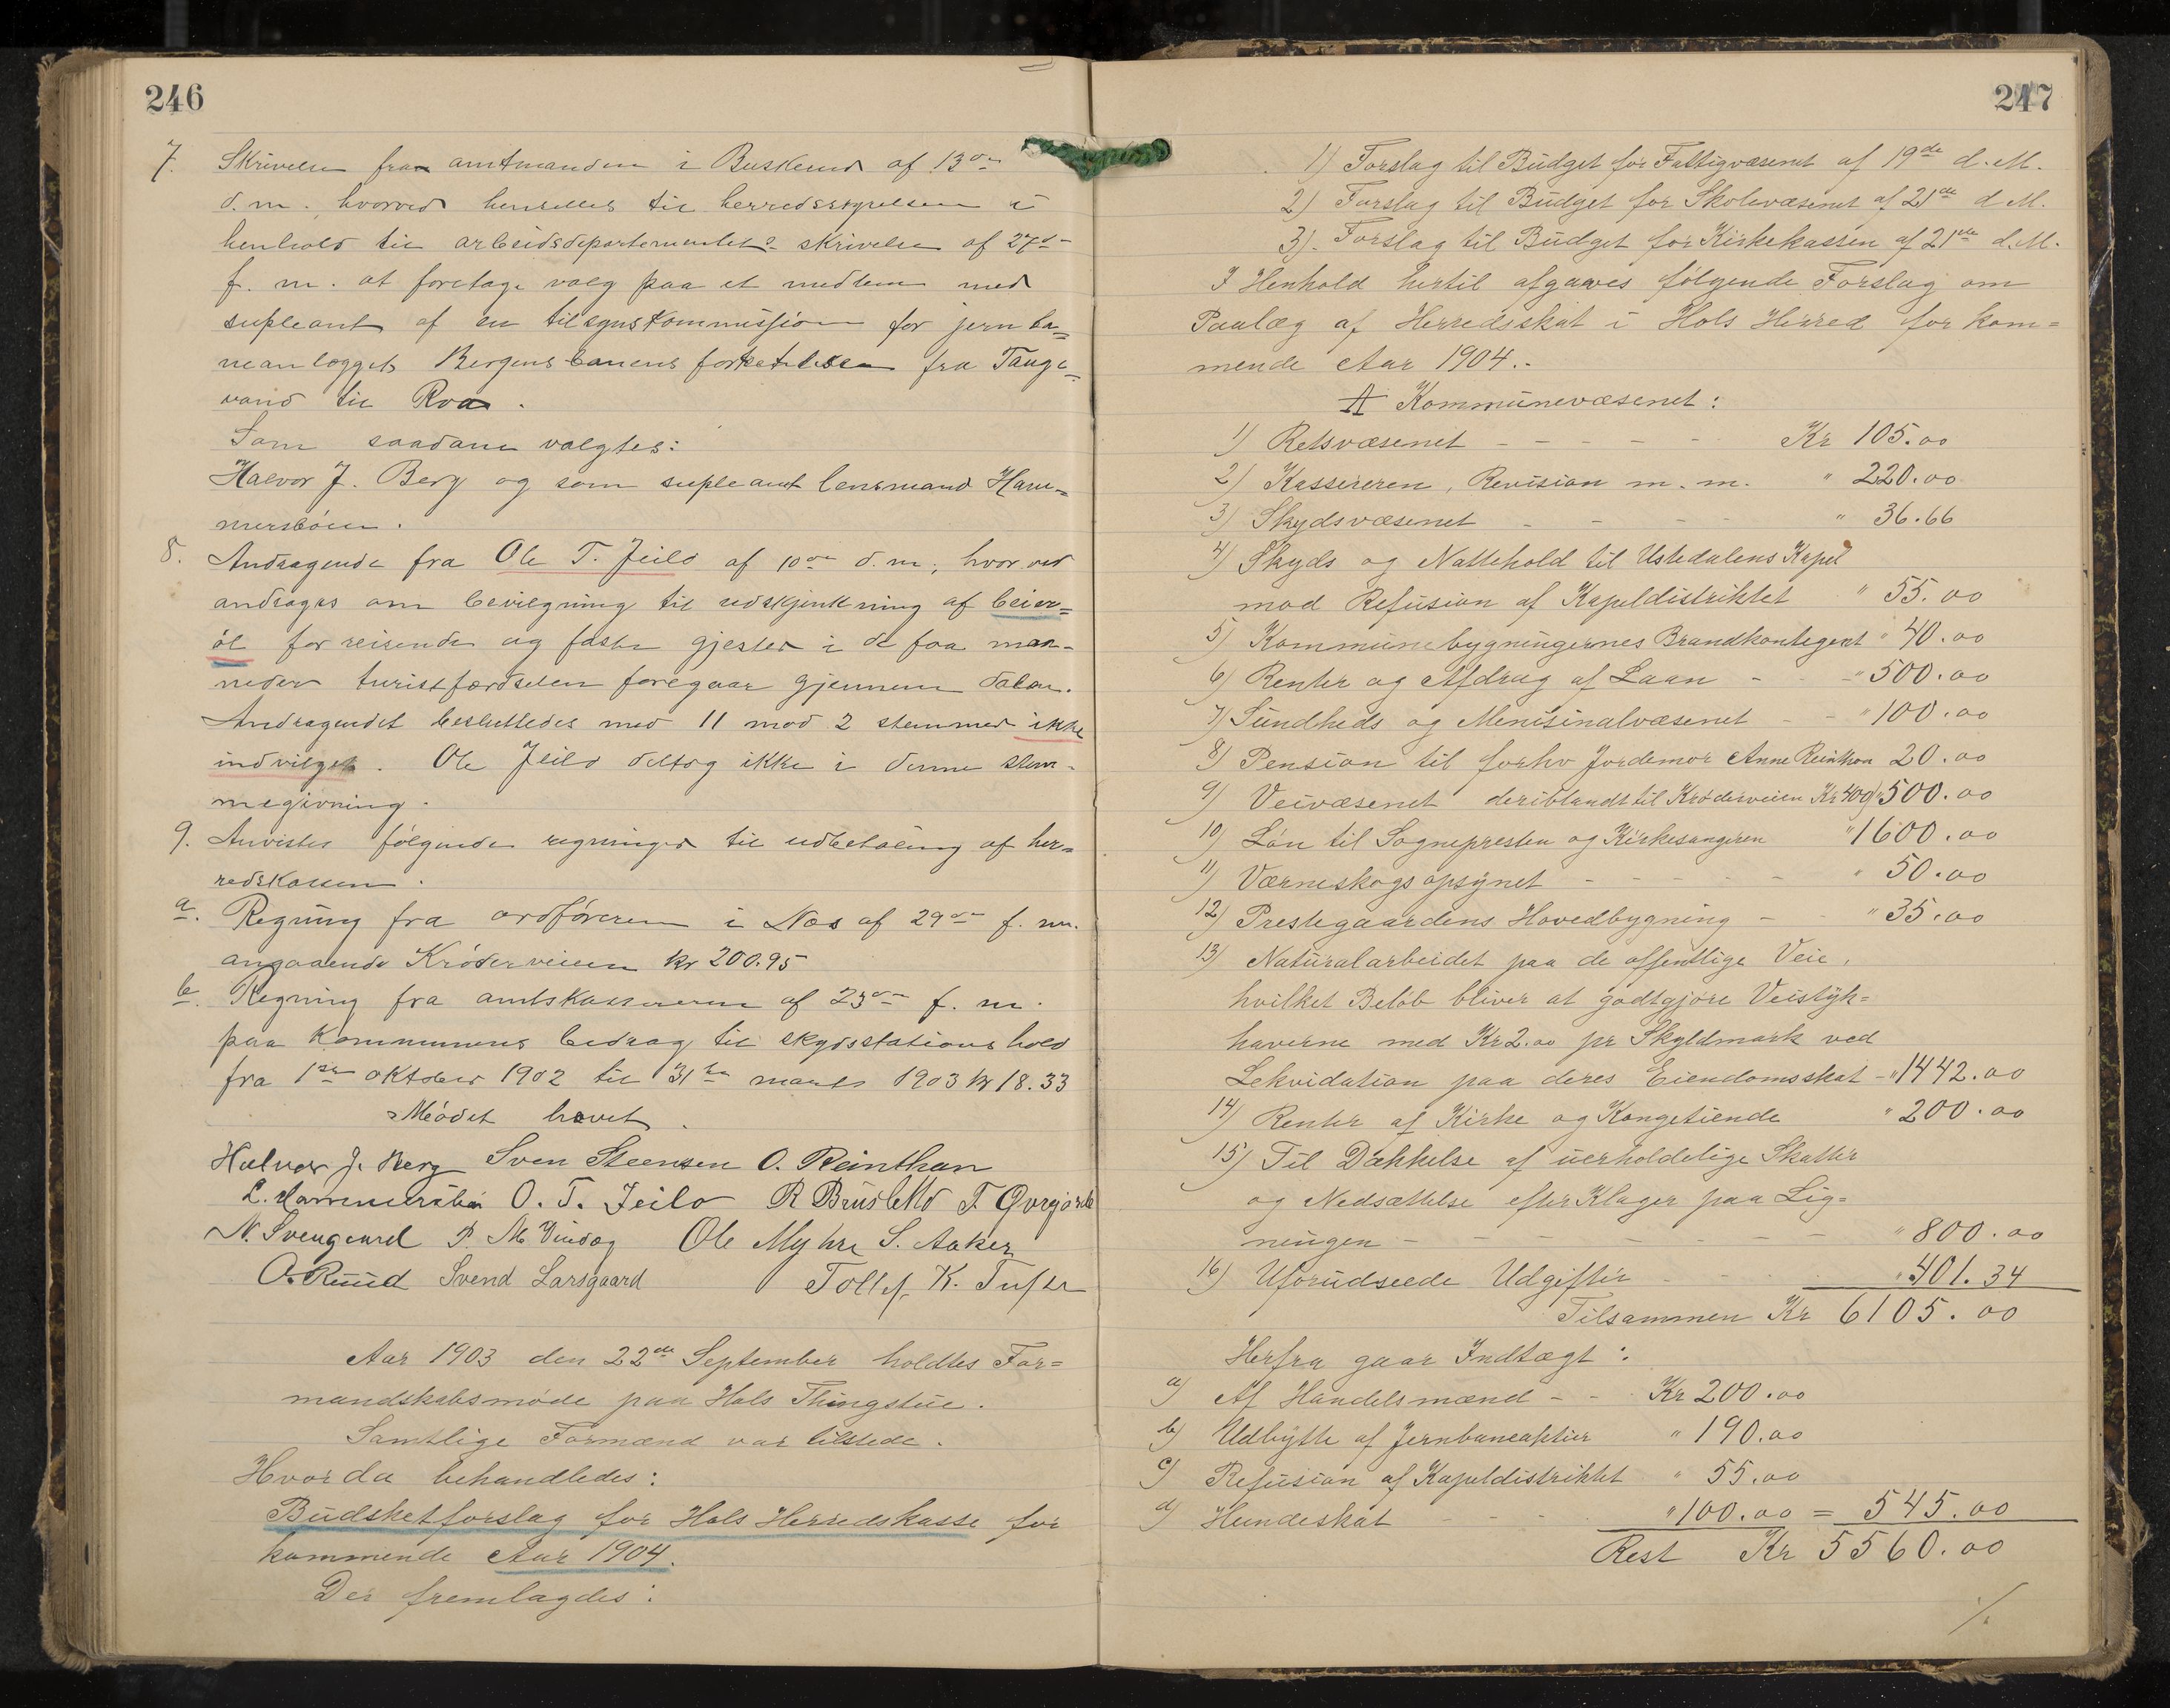 246
7. Skrivelse fra amtmanden i Buskerud af 13de
d.m. hvorved henstilles til herredsstyrelsen i
henhold til arbeidsdepartementets skrivelse af 27de
f. m. at foretage valg paa et medlem med
supleant af en tilsynskommission for jernba=
neanlægget Bergensbanens fortsættelse fra Tauge=
vand til Roa.
Som saadan valgtes:
Halvor J. Berg og som supleant lensmand Ham=
mersbøen.
8. Andragende fra Ole T. Jeilo af 10de d.m., hvorved
andrages om bevilgning til udskjenkning af beier=
øl for reisende og faste gjester i de faa maa-
neder turistfærdselen foregaar gjennem dalen.
Andragendet besluttedes med 11 mod 2 stemmer ikke
indvilget. Ole Jeilo deltog ikke i denne stem-
megivning.
9. Anvistes følgende regninger til udbetaling af her=
redskassen.
a. Regning fra ordføreren i Nes af 29de f. m.
angaaende Krøderveien kr 200.95
b. Regning fra amtskassereren af 23de f. m.
paa kommunens bidrag til skydsstationshold
fra 1ste oktober 1902 til 31te marts 1903 kr 18.33
Mødet hævet.
Halvor J. Berg Sven Steensen O. Reinthon
L. Hammersbøen O. T. Jeilo R Brusletto T
N. Svengaard P. M. Ole Myhre S. Aaker
O. Ruud Svend Larsgaard Tollef K. Tufte
Aar 1903 den 22de September holdtes For=
mandskabsmøde paa Hols Thingstue.
Samtlige Formænd var tilstede.
Hvor da behandledes:
Budsketforslag for Hols Herredskasse for
kommende Aar 1904.
Der fremlagdes:
247
1) Forslag til Budget for Fattigvæsenet af 19de d.M.
2) Forslag til Budget for Skolevæsenet af 21de d M.
3). Forslag til Budget for Kirkekassen af 21de d.M.
I Henhold hertil afgaves følgende Forslag om
Paalæg af Herredsskat i Hols Herred for kom=
mende Aar 1904.-
A Kommunevæsenet:
1) Retsvæsenet - - - - - Kr 105.00
2) Kassereren, Revision m. m. " 220.00
3) Skydsvæsenet - - - - " 36.66
4) Skyds og Nattehold til Ustedalens Kapel
mod Refusion af Kapeldistriktet " 55.00
5) Kommunebygningernes Brandkontegent " 40.00
6) Renter og Afdrag af Laan - - - " 500.00
7) Sundheds og Menisinalvæsenet - - " 100.00
8) Pension til forhv Jordemor Anne Reinthon 20.00
9) Veivæsenet deriblandt til Krøderveien Kr 400) " 500.00
10) Løn til Sognepresten og Kirkesangeren " 1600.00
11) Værneskogsopsynet - - - - - " 50.00
12) Prestegaardens Hovedbygning - - " 35.00
13) Naturalarbeidet paa de offentlige Veie,
hvilket Beløb bliver at godtgjøre Veistyk=
haverne med Kr 2.00 pr Skyldmark ved
Lekvidation paa deres Eiendomsskat - " 1442.00
14) Renter af Kirke og Kongetiende " 200.00
15) Til Dækkelse af uerholdelige Skatter
og Nedsættelse efter Klager paa Lig=
ningen - - - - - - - " 800.00
16) Uforudseede Udgifter - - - " 401.34
Tilsammen Kr 6105.00
Herfra gaar Indtægt:
a) Af Handelsmænd - - Kr 200.00
b) Udbytte af Jernbaneaktier " 190.00
c) Refusion af Kapeldistriktet " 55.00
d) Hundeskat - - - " 100.00 = 545.00
Rest Kr 5560.00
./.